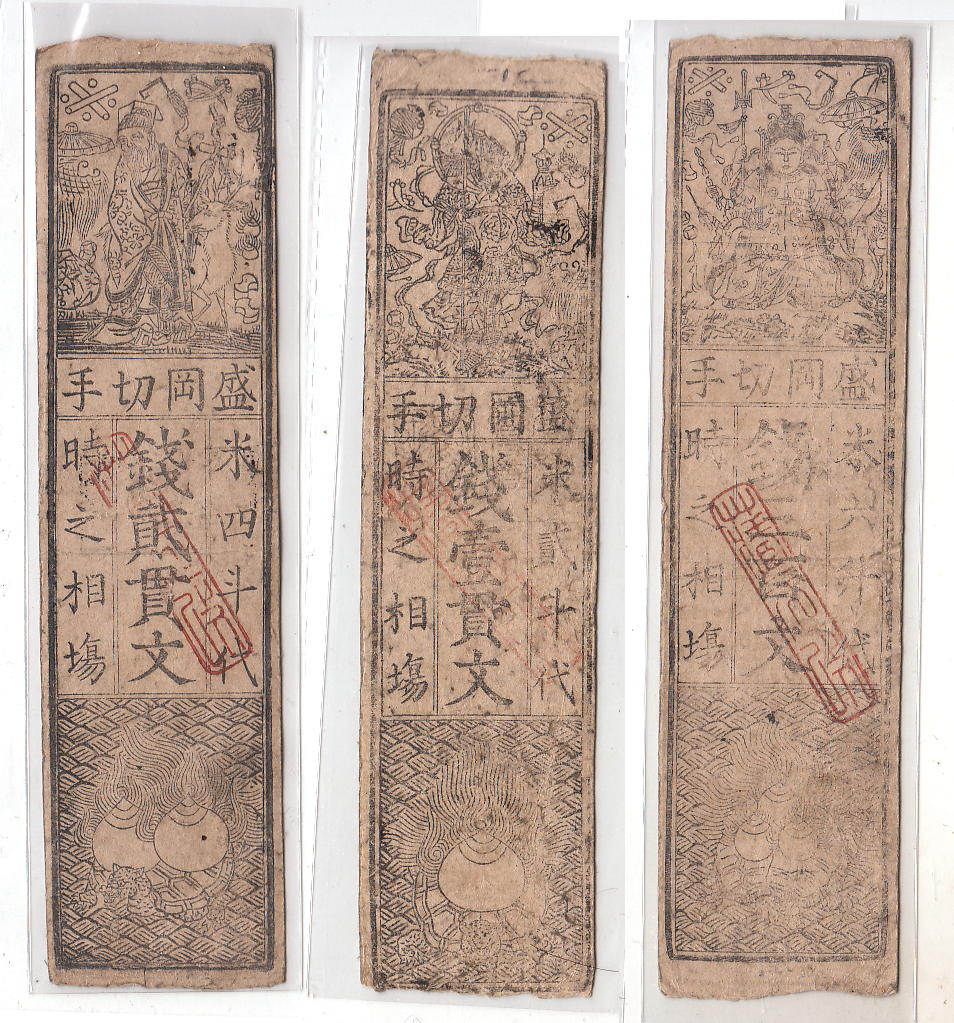 盛岡切手
米四斗代
錢貳貫文
時之相塲
盛岡切手
米貳斗代
錢壹貫文
時之相塲
盛岡切手
米六升代
錢三百文
時之相塲